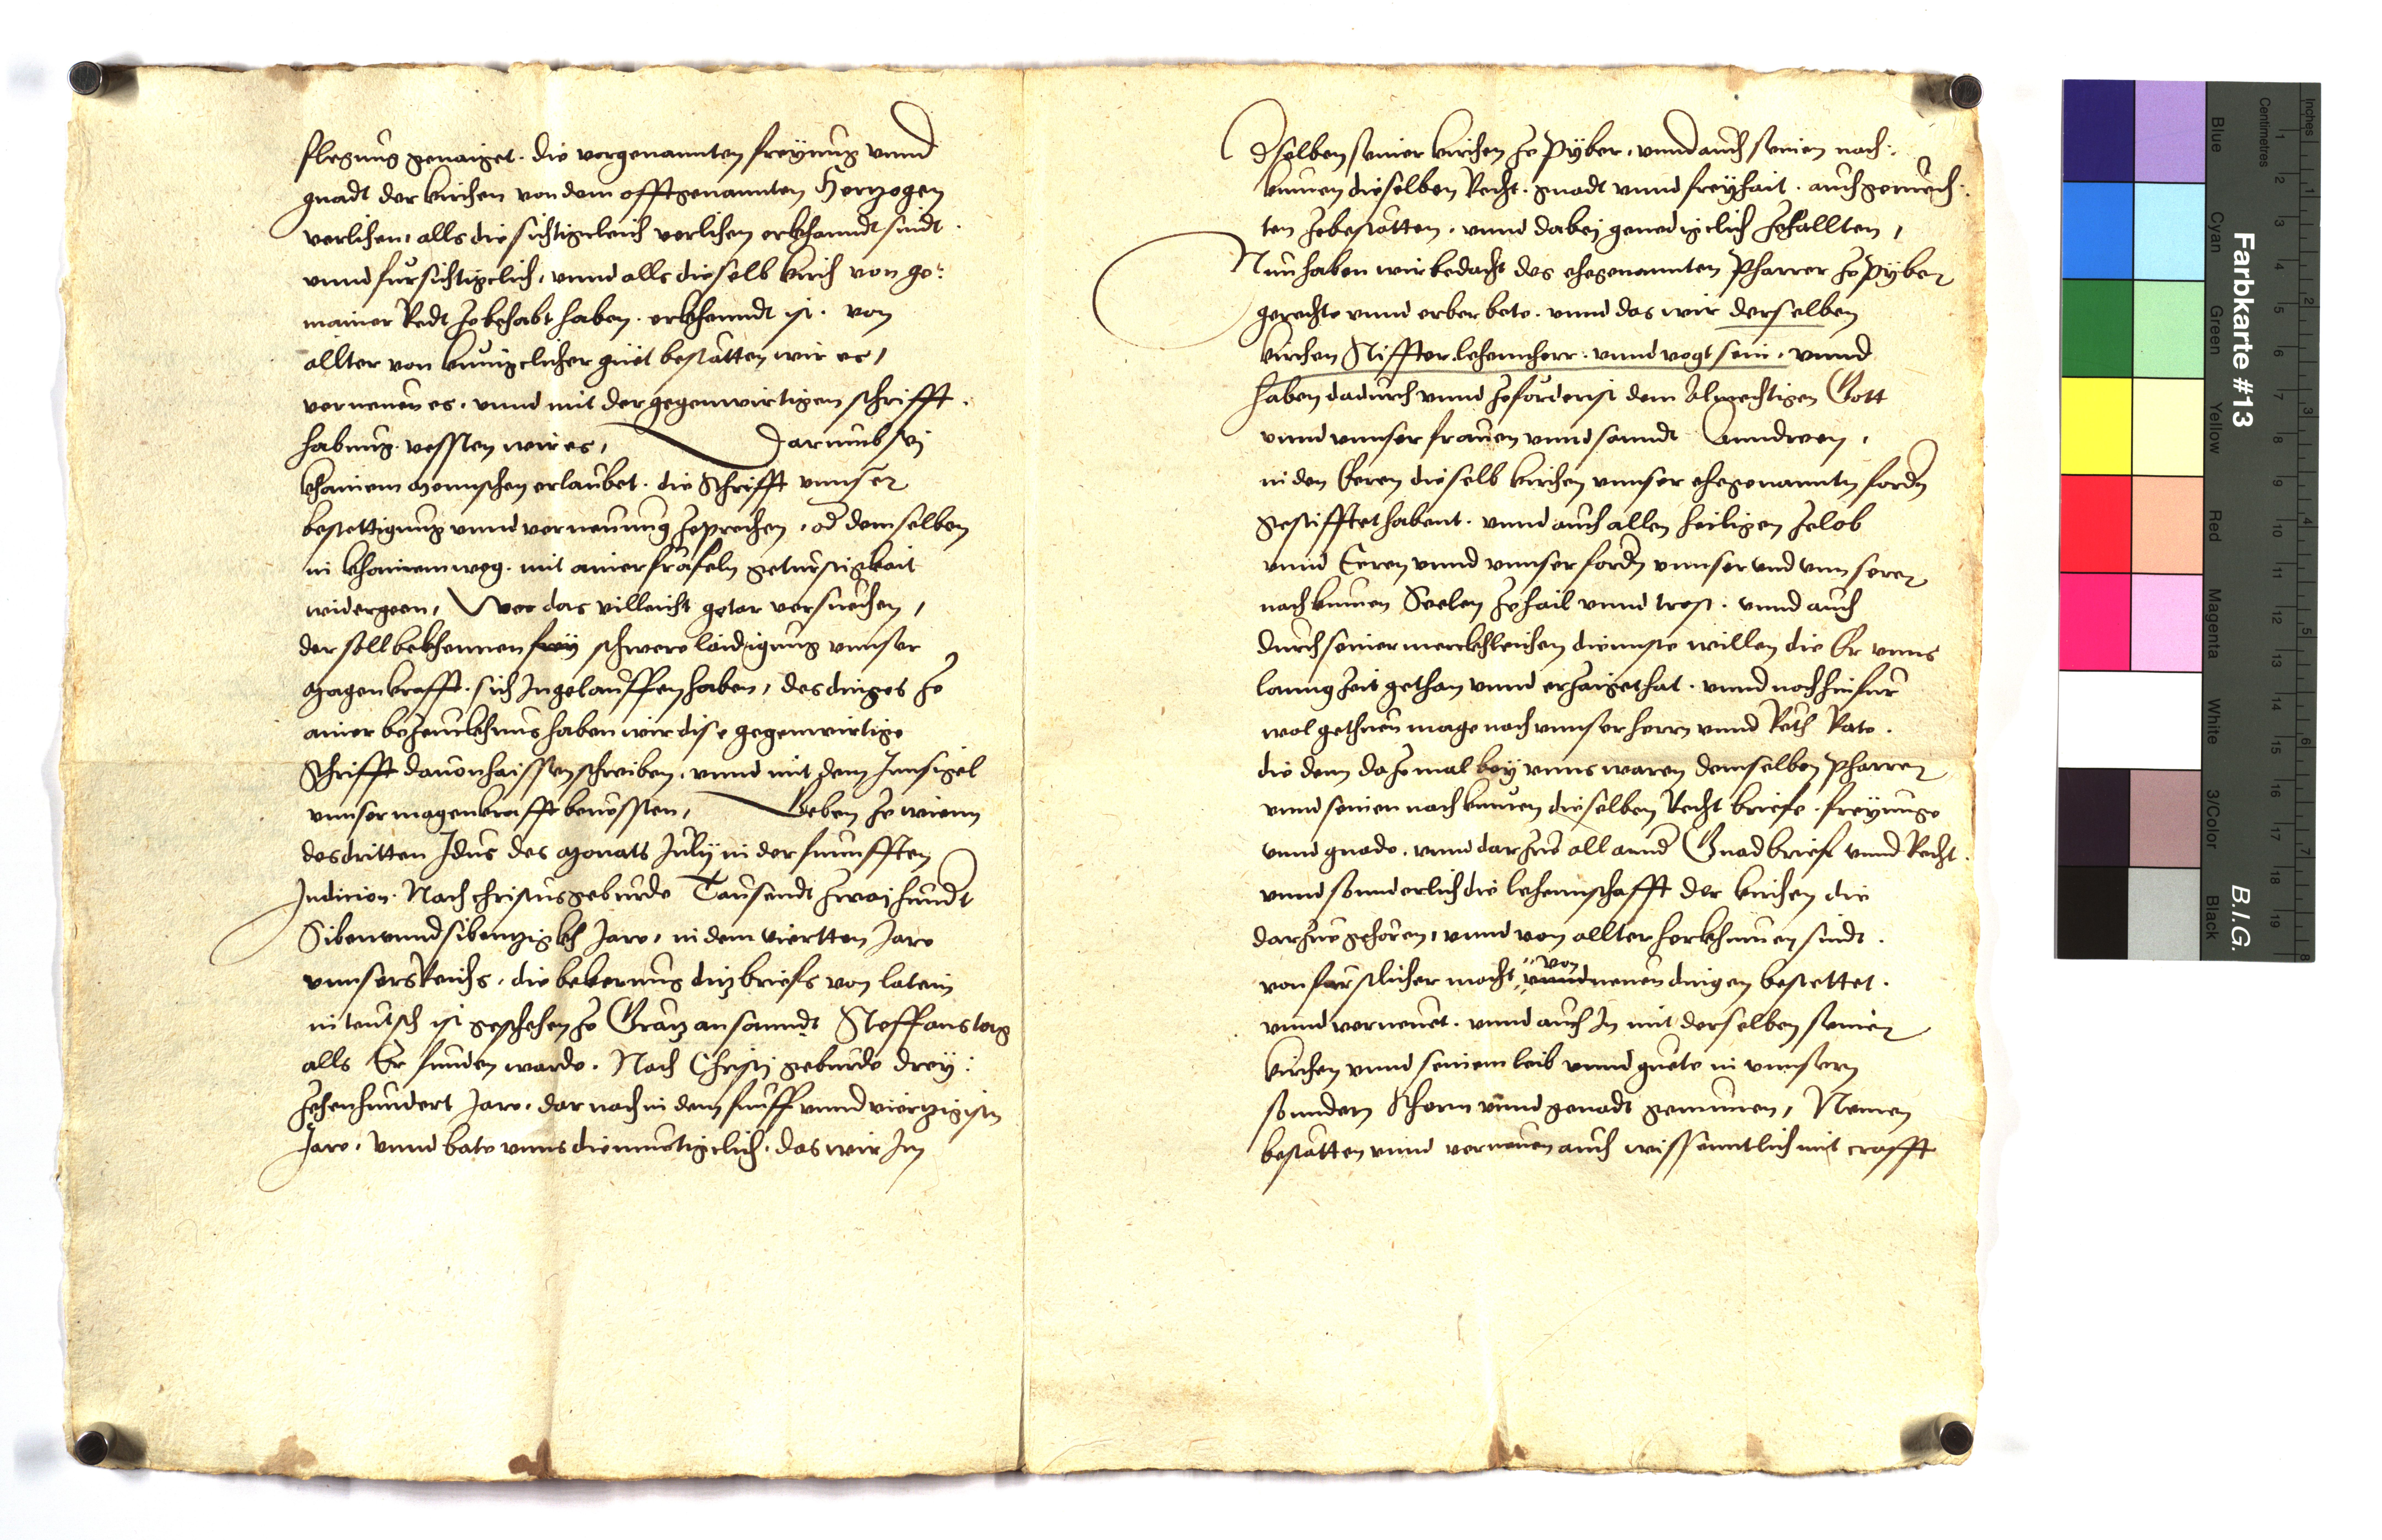 flegung genaiget. die vorgenannten freyung vnnd
gnadt der kirchen von dem offtgenannten Hertzogen
verlihen, alls die sichtigcleich verlihen erkhanndt sindt.
vnnd fürsichtigclich, vnnd alls dieselb kirch von ge:
mainer Redt ze behabt haben. erkhenndt ist. von
allter von kunigclicher güet bestätten wir es,
verneuen es. vnnd mit der gegenwirtigen schrifft.
habung. vessten wir es, Darumb sej
khainem mennschen erlaubet. die Schrifft vnnser
bestettigung vnnd verneuung zeprechen, od demselben
in khainem weg. mit ainer fräfeln geturstigkait
widergeen, Wer das villeicht getar versuechen,
der soll bekhennen schwere laidigung vnnser
magenkrafft. sich Ingelauffen haben, des dinges ze
ainer bezeuckhnus haben wir dise gegenwirtige
Schrifft dauon haissen schreiben, vnnd mit dem Innsigel
vnnser magenkrafft beuessten, Geben ze wienn
des dritten Idus des Monats July in der funfften
Indicion. Nach christus geburde Tausendt zwaj hundt
Siben vnnd sibentzigkh Jare, in dem viertten Jare
vnnsers Reichs, die bekerung ditz briefs von latein
in teutsch ist geschehen ze Grätz an sanndt Steffans tag
alls Er funden warde. Nach Christj geburde drey:
zehenhundert Jare, dar nach in dem funff vnnd viertzigistn
Jare, Vnnd bate vnns diemuetigclich. das wir Im
dselben seiner kirchen ze Pyber, vnnd auch seinen nach:
kumen dieselben Recht. gnadt vnnd freyhait. auch geruech:
ten zebestätten. vnnd dabej genedigclich zehallten,
Nun haben wir bedacht des ehegenannten Pharrer ze Pyber
gerechte vnnd erber bete. vnnd das wir derselben
kirchen Stiffter. lehennherr. vnnd vogt sein. vnnd
haben dadurch vnnd zefordrist dem Almechtigen Gott
vnnd vnnser frauen vnnd sanndt Anndreen,
in den Eeren dieselb kirchen vnnser ehegenannten fordn
gestifftet habent. vnnd auch allen heiligen zelob
vnnd Eeren vnnd vnnser fordn vnnser vnd vnnserer
nachkumen Seelen ze hail vnnd trost. vnnd auch
durch seiner merckhleichen diennste willen die Er vnns
lanng Zeit gethan vnnd erzaiget hat. vnnd noch hinfur
wol gethuen mage nach vnnser herrn vnnd Reth Rate.
die dem dazemal bey vnns waren demselben Pharrer
vnnd seinen nachkumen dieselben Recht briefe. freyunge
vnnd gnade. vnnd darzue all annd Gnadbrief vnnd Recht.
vnnd sonnderlich die lehennschafft der kirchen die
darzue gehören, vnnd von allter herkhumen sindt.
von furstlicher macht von
vnnd neuen dingen bestettet.
vnnd verneuet. vnnd auch In mit derselben seiner
kirchen vnnd seinem leib vnnd guete in vnnsern
sonndern Scherm vnnd genadt genumen, Nemen
bestätten vnnd verneuen auch wissenntlich mit crafft
Farbkarte #13
B.I.G.
Inches
Centimetres
Blue
Cyan
Green
Yellow
Red
Magenta
White
3/Color
Black